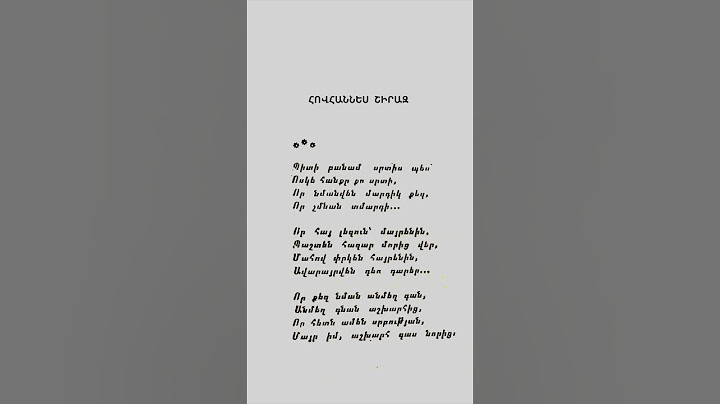 ՀՈՎՀԱՆՆԵՍ ՇԻՐԱԶ
***
Պիտի բանամ սրտիս պես
Ոսկե հանքը քո սրտի,
Որ նմանվեն մարդիկ քեզ,
Որ չմնան տմարդի...
Որ հայ լեզուն՝ մայրենին.
Պաշտեն հազար մորից վեր,
Մահով փրկեն հայրենին,
Ավարայրվեն դեռ դարեր...
Որ քեզ նման անմեղ գան,
Անմեղ գնան աշխարհից,
Որ հետն ամեն սրբության,
Մայր իմ, աշխարհ գաս նորից։